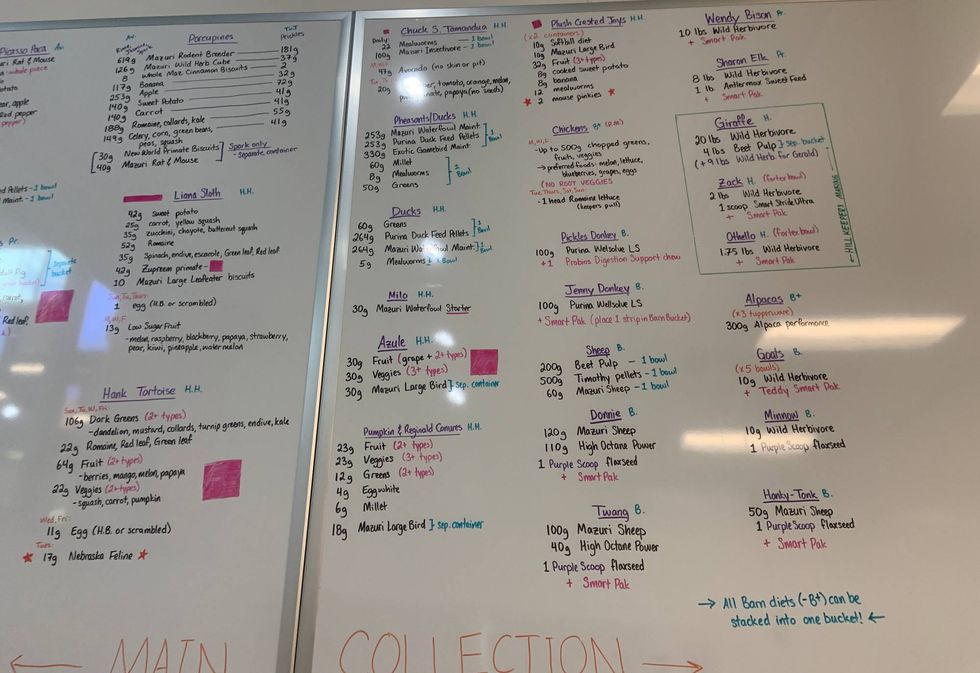 Picasso Paca Av.
uri Rat & Mouse
- whole piece
otato
ear, apple
Red pepper
pepper)
ed Pellets - 1 bowl
Maint. - 1 bowl
s Pr.
separate bucket
carrot,
Red leaf,
Porcupines
Av.
T&J Pickles
619g Mazuri Rodent Breeder 181g
126g Mazuri Wild Herb Cube 37g
8 whole Maz. Cinnamon Biscuits 2
117g Banana 32g
253g Apple 72g
140g Sweet Potato 41g
140g Carrot 41g
188g Romaine, collards, kale 55g
149g Celery, corn, green beans, peas, squash 41g
30g New World Primate Biscuits
40g Mazuri Rat & Mouse
Spark only - separate container
Liana Sloth H.H.
42g sweet potato
25g carrot, yellow squash
35g zucchini, chayote, butternut squash
52g Romaine
35g Spinach, endive, escarole, Green leaf, Red leaf
42g Zupreem primate -
10 Mazuri Large Leafeater biscuits
Sun, Tu, Thurs:
1 egg (H.B. or scrambled)
M, W, F:
13g Low Sugar Fruit
- melon, raspberry, blackberry, papaya, strawberry,
pear, kiwi, pineapple, watermelon
Hank Tortoise H.H.
Sun, Tu, W, Fri:
106g Dark Greens (2+ types)
- dandelion, mustard, collards, turnip greens, endive, kale
22g Romaine, Red leaf, Green leaf
64g Fruit (2+ types)
- berries, mango, melon, papaya
22g Veggies (2+ types)
- squash, carrot, pumpkin
Wed, Fri:
11g Egg (H.B. or scrambled)
Tues:
★ 17g Nebraska Feline ★
← MAIN
Chuck S. Tamandua H.H.
Daily:
22 Mealworms - 1 bowl
100g Mazuri Insectivore - 1 bowl
M, W, F
47g Avocado (no skin or pit)
20g tomato, orange, melon,
papaya (no seeds)
Pheasants/Ducks H.H.
253g Mazuri Waterfowl Maint.
253g Purina Duck Feed Pellets
330g Exotic Gamebird Maint.
1 Bowl
60g Millet
8g Mealworms
50g Greens
1 Bowl
Ducks H.H.
60g Greens
264g Purina Duck Feed Pellets
1 Bowl
264g Mazuri Waterfowl Maint.
5g Mealworms
1 Bowl
Milo H.H.
30g Mazuri Waterfowl Starter
Azule H.H.
30g Fruit (grape + 2+ types)
30g Veggies (3+ types)
30g Mazuri Large Bird } sep. container
Pumpkin & Reginald Conures H.H.
23g Fruit (2+ types)
23g Veggies (3+ types)
12g Greens (2+ types)
4g Egg white
6g Millet
18g Mazuri Large Bird } sep. container
COLLECTION →
Plush Crested Jays H.H.
(x2 containers)
10g Softbill diet
10g Mazuri Large Bird
32g Fruit (3+ types)
8g cooked sweet potato
8g banana
12 mealworms
★ 2 mouse pinkies ★
Chickens B+ (P.M)
M, W, F:
- Up to 500g chopped greens,
fruits, veggies
→ preferred foods - melon, lettuce,
blueberries, grapes, eggs
(NO ROOT VEGGIES
Tue, Thurs, Sat, Sun:
- 1 head Romaine lettuce
(keepers pull)
Pickles Donkey B.
100g Purina Wellsolve LS
+1 Probios Digestion Support chew
Jenny Donkey B.
100g Purina Wellsolve LS
+ Smart Pak (place 1 strip in Barn Bucket)
Sheep B.
200g Beet Pulp - 1 bowl
500g Timothy pellets - 1 bowl
60g Mazuri Sheep - 1 bowl
Donnie B.
120g Mazuri Sheep
110g High Octane Power
1 Purple Scoop flaxseed
+ Smart Pak
Twang B.
100g Mazuri Sheep
40g High Octane Power
1 Purple Scoop flaxseed
+ Smart Pak
Wendy Bison Pr.
10 lbs Wild Herbivore
+ Smart Pak
Sharon Elk Pr.
8 lbs Wild Herbivore
1 lb. Antlermax Sweet Feed
+ Smart Pak
Giraffe H.
20 lbs Wild Herbivore
4 lbs Beet Pulp } sep. bucket
(+ 9 lbs Wild Herb. for Gerald)
Zack H. (forter bowl)
2 lbs Wild Herbivore
1 scoop Smart Stride Ultra
+ Smart Pak
Othello H. (forter bowl)
1.75 lbs Wild Herbivore
+ Smart Pak
← HILL KEEPERS MAKING →
Alpacas B+
(x3 tupperware)
300g Alpaca performance
Goats B.
(x5 bowls)
10g Wild Herbivore
+ Teddy Smart Pak
Minnow B.
10g Wild Herbivore
1 Purple Scoop flaxseed
Honky-Tonk B.
50g Mazuri Sheep
1 Purple Scoop flaxseed
+ Smart Pak
→ All Barn diets (-B+) can be
stacked into one bucket! ←